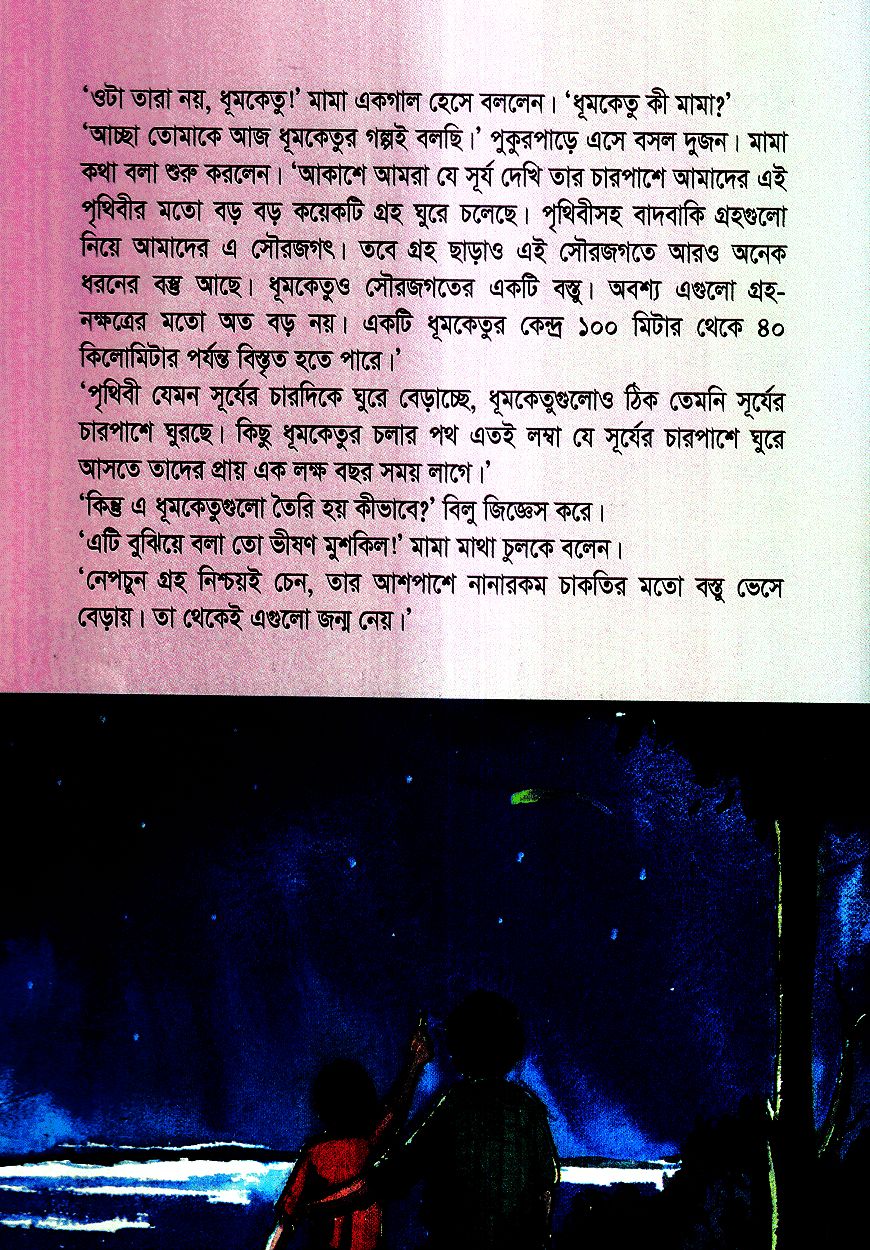 ‘ওটা তারা নয়, ধূমকেতু!’ মামা একগাল হেসে বললেন। ‘ধূমকেতু কী মামা?’
‘আচ্ছা তোমাকে আজ ধূমকেতুর গল্পই বলছি।’ পুকুরপাড়ে এসে বসল দুজন। মামা
কথা বলা শুরু করলেন। ‘আকাশে আমরা যে সূর্য দেখি তার চারপাশে আমাদের এই
পৃথিবীর মতো বড় বড় কয়েকটি গ্রহ ঘুরে চলেছে। পৃথিবীসহ বাদবাকি গ্রহগুলো
নিয়ে আমাদের এ সৌরজগৎ। তবে গ্রহ ছাড়াও এই সৌরজগতে আরও অনেক
ধরনের বস্তু আছে। ধূমকেতুও সৌরজগতের একটি বস্তু। অবশ্য এগুলো গ্রহ-
নক্ষত্রের মতো অত বড় নয়। একটি ধূমকেতুর কেন্দ্র ১০০ মিটার থেকে ৪০
কিলোমিটার পর্যন্ত বিস্তৃত হতে পারে।’
‘পৃথিবী যেমন সূর্যের চারদিকে ঘুরে বেড়াচ্ছে, ধূমকেতুগুলোও ঠিক তেমনি সূর্যের
চারপাশে ঘুরছে। কিছু ধূমকেতুর চলার পথ এতই লম্বা যে সূর্যের চারপাশে ঘুরে
আসতে তাদের প্রায় এক লক্ষ বছর সময় লাগে।’
‘কিন্তু এ ধূমকেতুগুলো তৈরি হয় কীভাবে?’ বিলু জিজ্ঞেস করে।
‘এটি বুঝিয়ে বলা তো ভীষণ মুশকিল!’ মামা মাথা চুলকে বলেন।
‘নেপচুন গ্রহ নিশ্চয়ই চেন, তার আশপাশে নানারকম চাকতির মতো বস্তু ভেসে
বেড়ায়। তা থেকেই এগুলো জন্ম নেয়।’